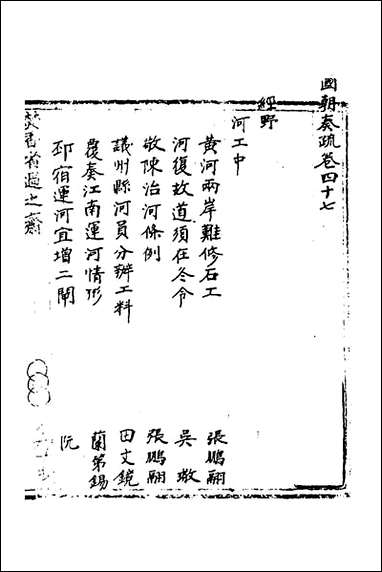 國朝奏疏卷四十七
經野
河工中
黃河兩岸難修石工 張鵬翮
河復故道須在冬令 吳璥
敬陳治河條例 張鵬翮
議州縣河員分辦工料 田文鏡
覆奏江南運河情形 蘭第錫
邳宿運河宜增二閘 阮
補過之齋